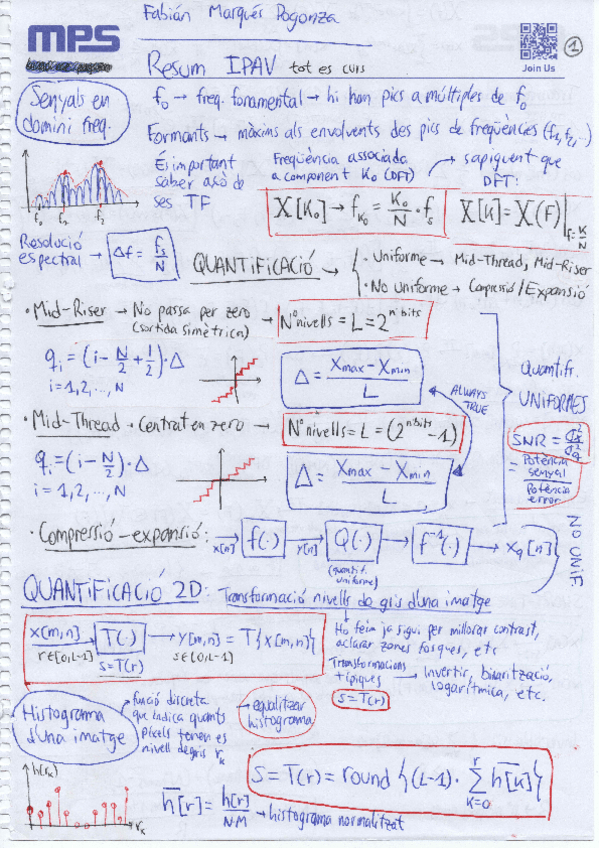 Fabián Marqués Pogonza
mps
Join Us
1
Resum IPAV tot es curs
Senyals en domini freq.
f₀ → freq. fonamental → hi han pics a múltiples de f₀
Formants → màxims als envolvents des pics de freqüències (f₁, f₂, ...)
És important saber això de ses TF
Freqüència associada a component K₀ (DFT)
X[K₀] → f_K₀ = K₀/N · fₛ
sapiguent que DFT:
X[K] = X(F)|F=K/N
Resolució espectral → Δf = fₛ/N
QUANTIFICACIÓ →
· Uniforme → Mid-Thread, Mid-Riser
· No Uniforme → Compressió/Expansió
· Mid-Riser → No passa per zero (sortida simètrica) → Nº nivells = L = 2^nºbits
qᵢ = (i - N/2 + 1/2) · Δ
i = 1, 2, ..., N
Δ = (Xmax - Xmin)/L
ALWAYS TRUE
Quantifi. UNIFORMES
· Mid-Thread → Centrat en zero → Nº nivells = L = (2^nºbits - 1)
qᵢ = (i - N/2) · Δ
i = 1, 2, ..., N
Δ = (Xmax - Xmin)/L
SNR = σₓ²/σq² = Potència senyal / Potència error
· Compressió-expansió:
x[n] → f(·) → y[n] → Q(·) → f⁻¹(·) → xq[n]
(quantif. uniforme)
NO UNIF
QUANTIFICACIÓ 2D: Transformació nivells de gris d'una imatge
x[m,n] → T(·) → y[m,n] = T{x[m,n]}
r∈[0,L-1]
s=T(r)
s∈[0,L-1]
Ho feim ja sigui per millorar contrast, aclarar zones fosques, etc
Transformacions típiques → Invertir, binarització, logarítmica, etc.
s=T(r)
Histograma d'una imatge
funció discreta que indica quants píxels tenen es nivell de gris rₖ
→ equalitzar histograma
s = T(r) = round {(L-1) · Σ h̄[k]}
r
k=0
h(rₖ)
rₖ
h̄[r] = h[r]/N·M → histograma normalitzat